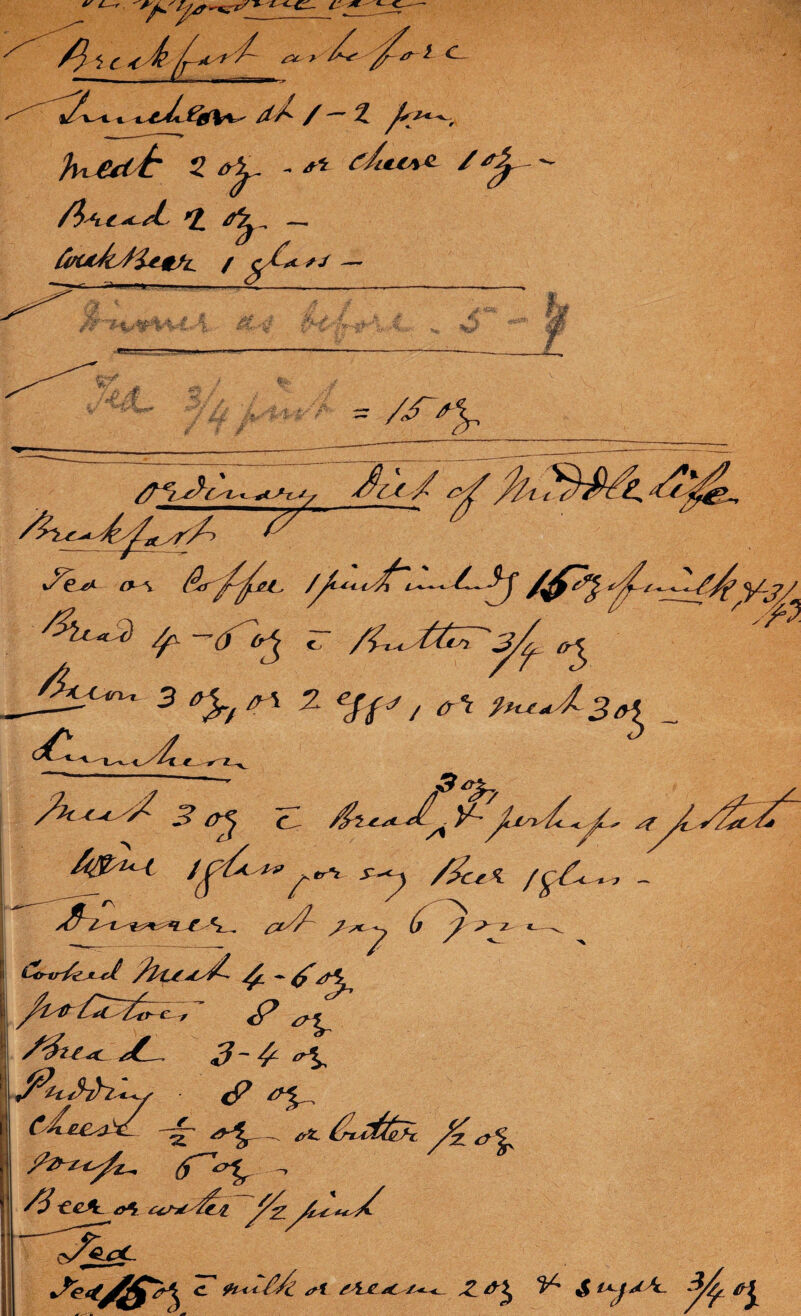 Breakfast as before
Luncheon at 1 - 2 pm,
Meat 2 oz. - or cheese 1 oz -
Bread 2 oz. -
Weak Beer 1 glass -
Dinner as before. 5 - 7
Tea 3/4 pint = 15 oz
Ordinary Diet of Middle Life
Breakfast
Tea or Coffee 1 pint includg 15 oz of milk & 3/4 3
Bread 4 - 6 oz c̄ Butter 3/4 oz
Bacon 3 oz, or 2 eggs, or meat 3 oz -
Luncheon
3 oz,
Meat 3 oz c̄ Bread ^ & perhaps a potato
Wine 1 glass, or say Beer 1 glass -
Dinner. at say 6 pm.
Cooked Meat 4 - 6 oz
potatoes 8 oz
Bread 3 - 4 oz
Pudding 8 oz.
Cheese ½ oz - or butter ½ oz
soup 6 oz -
Beer or water ½ pint
Tea
Tea 15 oz c̄ milk or cream 2 oz & sugar 3/4 oz